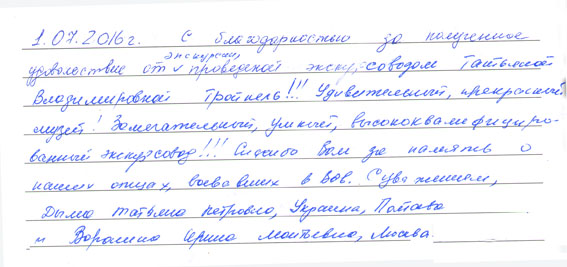 1.07.2016г. С благодарностью за полученное
экскурсии,
удовольствие от проведеной экскурсоводом Татьяной
Владимировной Тройнель!!! Удивительный, прекрасный
музей! Замечательный, умный, высококвалифициро-
ванный экскурсовод!!! Спасибо Вам за память о
наших отцах, воевавших в ВОВ. С уважением,
Татьяна Петровна, Украина, Полтава
и Ирина Матвеевна, Москва.